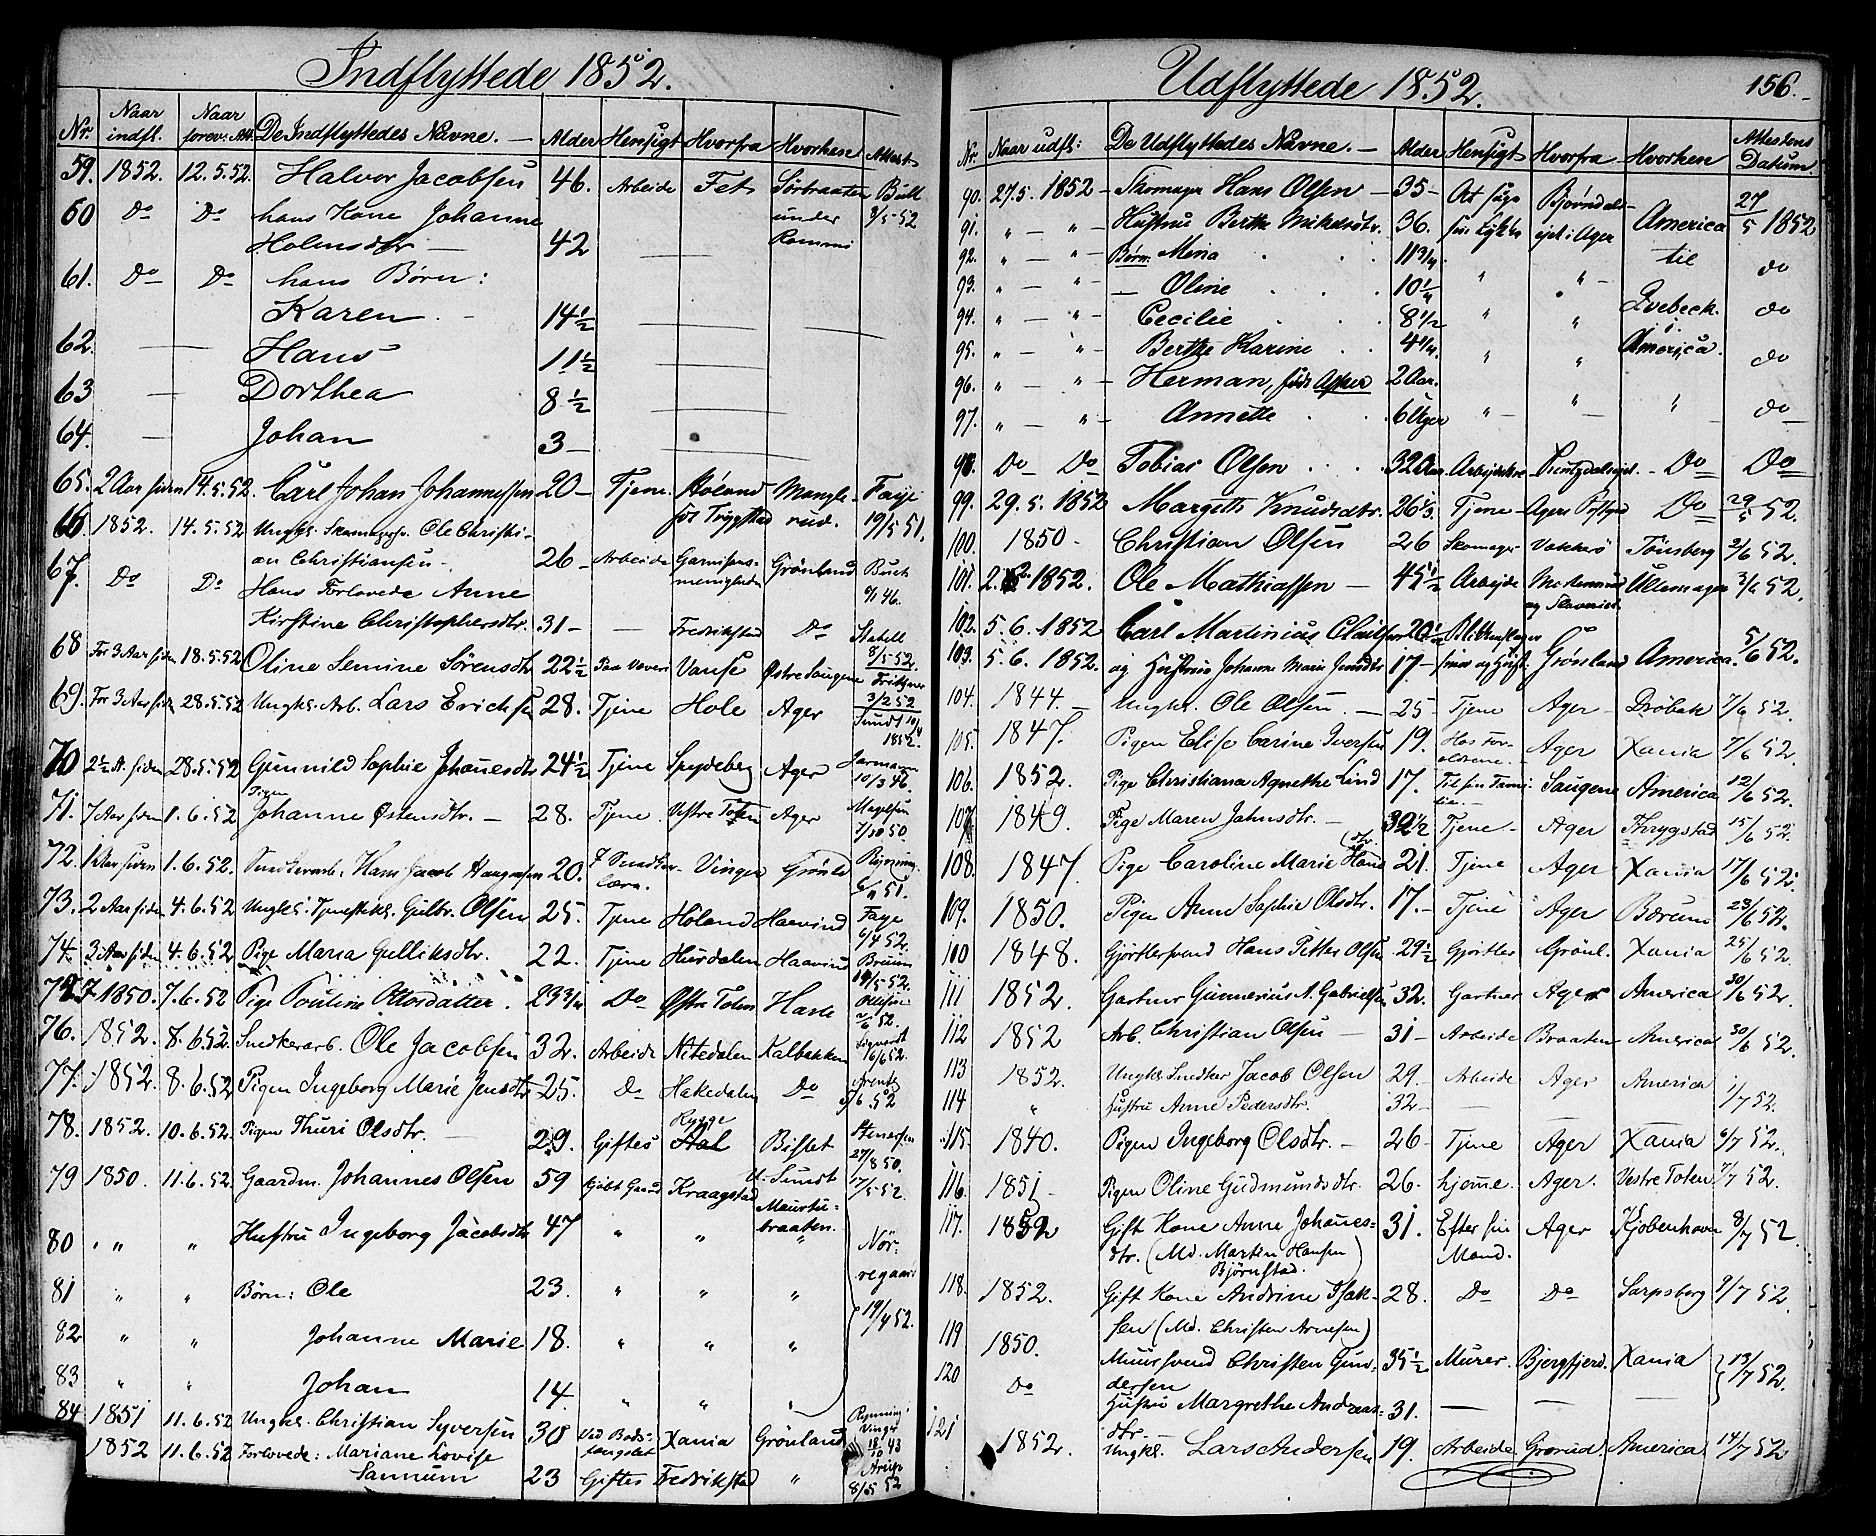 Indflyttede 1852.
Nr. Naar indfl. Naar forev. Att. De Indflyttedes Navne. Alder Hensigt Hvorfra Hvorhen Attest
59. 1852. 12.5.52. Halvor Jacobsen 46. Arbeide Fet Sörbraaten under Rommi Bull 9/5-52
60 Do Do hans Kone Johanne Holmsdtr 42
61. Do Do hans Børn:
Karen 14½
62. Hans 11½
63 Dorthea 8½
64. Johan 3
65. 2 Aar siden 14.5.52. Carl Johan Johannessen 20 Tjene. Høland før Trygstad Manglerud. Faye 19/5 51.
66 1852. 14.5.52 Ungkl. Skomagersv. Ole Christian Christiansen 26 Arbeide Garnisonsmenigheden Grönland
67. Do Do Hans Forlovede Anne Kirstine Christophersdtr. 31 Fredrikstad Do Buck 9/1 46.
68 For 3 Aar siden 18.5.52 Oline Semine Sörensdtr 22½ Paa Væveri Vanse Østre Sougene 8/5-52.
69. For 3 Aar siden 28.5.52 Ungkl. Arb. Lars Erichsen 28. Tjene Hole Ager 3/2 52
70 2½ A. siden 28.5.52 Gunnild Sophie Johanesdtr 24½ Tjene Spydeberg Ager 10/3 46.
71. 7 Aar siden 1.6.52 Pigen Johanne Østensdtr. 28. Tjene Vestre Toten Ager 7/10 50.
72. 1 Aar siden 1.6.52. Snedkerarb. Hans Jacob Haagensen 20. I Snedkerlære. Vinger Grönl. Rynning
73. 2 Aar siden 4.6.52 Ungkl. Tjenestekl. Gulbr. Olsen 25. Tjene Höland Haavind Faye 6/4 52.
74. 3 Aar siden 4.6.52 Pige Maria Gulliksdtr. 22. Tjene Hurdalen Haavind Bruun
75 1850. 7.6.52 Pige Pouline Ottosdatter. 23¾ Do Østre Toten Hasle
76. 1852. 8.6.52. Snedkerarb. Ole Jacobsen 32. Arbeide Nitedalen Kalbakken
77. 1852. 8.6.52 Pigen Ingeborg Marie Jensdtr 25. Do Hakedalen Do
78. 1852. 10.6.52. Pigen Thuri Olsdtr. 29. Giftes Rygge Bislet Stenersen 27/8 50.
79 1850. 11.6.52. Gaardm. Johannes Olsen 59 kjöbt Gaard Kraagstad
80 " " Hustru Ingeborg Jacobsdtr 47 " " " Nörregaard 19/4 52.
81 " " Børn: Ole 23. " " "
82 " " Johanne Marie 18. " " "
83 " " Johan 14. " " "
84 1851 11.6.52 Ungkl. Christian Syversen 30 Ved Bodsfængslet Xania Grönland Rynning Vinger 18/10 43
1852 11.6.52 Forlovede: Mariane Lovise Sannum 23 Giftes Fredrikstad " 8/5 52
Udflyttede 1852. 156.
Nr. Naar udfl: De Udflyttedes Navne. Alder Hensigt Hvorfra Hvorhen Attestens Datum.
90. 27.5.1852 Skomager Hans Olsen 35 At søge sin Lykke Bjørndalsejet i Ager America til Qvebeck i America. 27/5 1852
91. " " Hustru Berthe Mikelsdtr. 36.
92. " " Børn: Mina 11¾ do
93. " " Oline 10¼ " "
94. " " Cecilie 8½ " " do
95. " " Berthe Karine 4¼. " " do
96. " " Herman, født Asker 2 Aar.
97. " " Annette 6 Uger " " " do
98. Do Do Tobias Olsen 32 Aar Do Do
99. 29.5.1852 Margeth Knudsdtr. 26⅓. Tjene Agers Do 29/5 52.
100. 1850 Christian Olsen 26 Skomager Vakkerö Tönsberg 2/6 52.
101. 2.6.1852. Ole Mathiassen 45½ Arbejde Ullensager 3/6 52.
102. 5.6.1852 Carl Martinius 20½ Blikkenslager
103. 5.6.1852. og Hustrue Johanne Marie 17 Grønland America. 5/6 52.
104. 1844. Ungkl. Ole Olsen. 25 Tjene Ager Dröbak 7/6 52.
105. 1847. Pigen Elise Carine Iversen 19. Hos Forældrene. Ager Xania 7/6 52
106. 1852. Pige Christiana Agnethe Lind 17. Til sin Familie. Saugene America 12/6 52.
107. 1849. Pige Maren Jahnsdtr. 30½ Tjene Ager Thrygstad 15/6 52.
108. 1847. Pige Caroline Marie Hansdtr. 21. Tjene Ager Xania 17/6 52.
109. 1850. Pigen Anne Sophie Olsdtr. 17. Tjene Ager Bærum 23/6 52.
100 1848. Gjörtlersvend Hans Petter Olsen 29½ Gjørtler Grönl. Xania 25/6 52.
111 1852. Gartner Gunnerius A. Gabrielsen 32. Gartner Ager America 30/6 52.
112 1852 Arb. Christian Olsen 31 Arbeide Braaten America 30/6 52.
113 1852. Ungkl. Snedker Jacob Olsen 29. Arbeide Ager America 1/7 52.
114 " Hustru Anne Pedersdtr. 32
115. 1840. Pigen Ingeborg Olsdtr. 26 Tjene Ager Xania 6/7 52.
116. 1851 Pigen Oline Gudmundsdtr. 26. hjeme. Ager. Vestre Toten 7/7 52.
117. 1852 Gift Kone Anne Johanesdtr. (Md. Martin Hansen Bjørnstad.) 31. Efter sin Mand. Ager Kjøbenhavn 8/7 52.
118. 1852. Gift Kone Andrine Isaksen (Md. Christen Arnesen) 28. Do Do Sarpsborg 9/7 52.
119 1850. Muursvend Christen Gundersen 35½ Murer Bjergfjerd. Xania 13/7 52.
120 Do Hustru Margrethe Andreasdtr. 31.
121 1852. Ungkl. Lars Andersen 19. Arbeide Grorud America 14/7 52